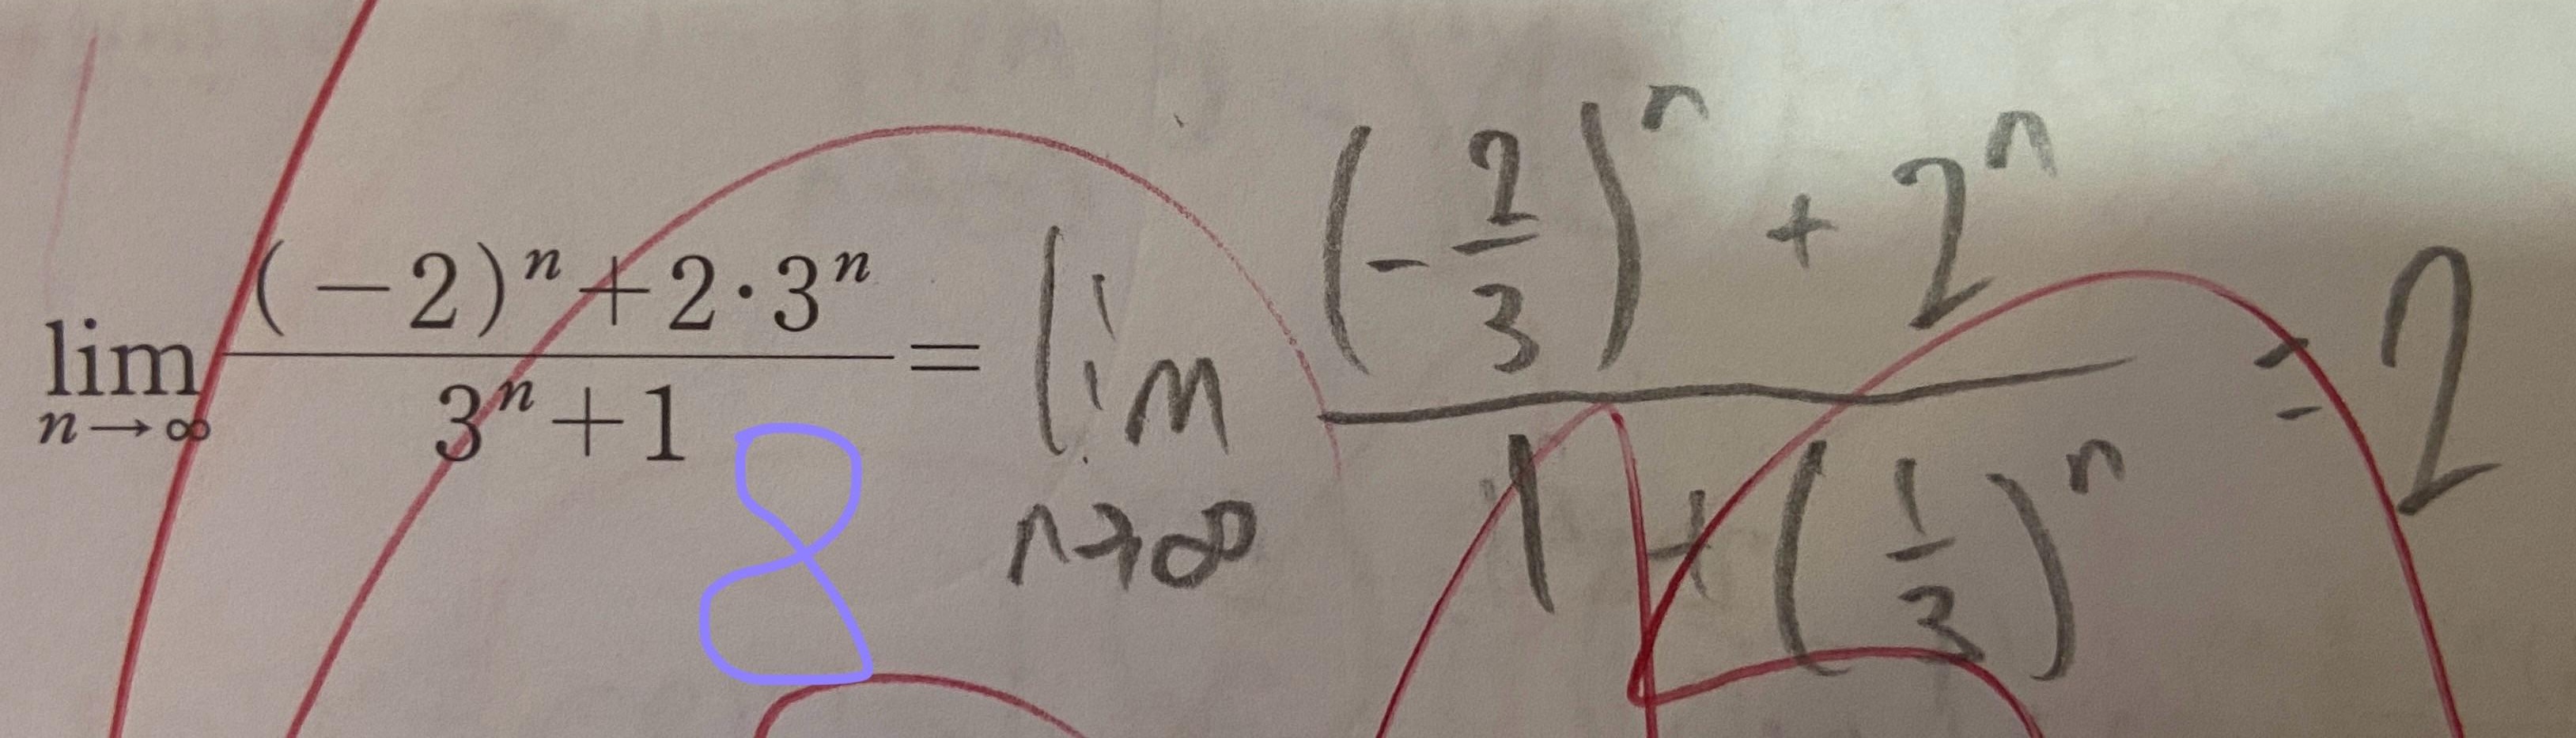 lim n→∞ ((-2)^n + 2·3^n)/(3^n + 1) = lim n→∞ ((-2/3)^n + 2^n)/(1 + (1/3)^n) = 2
8